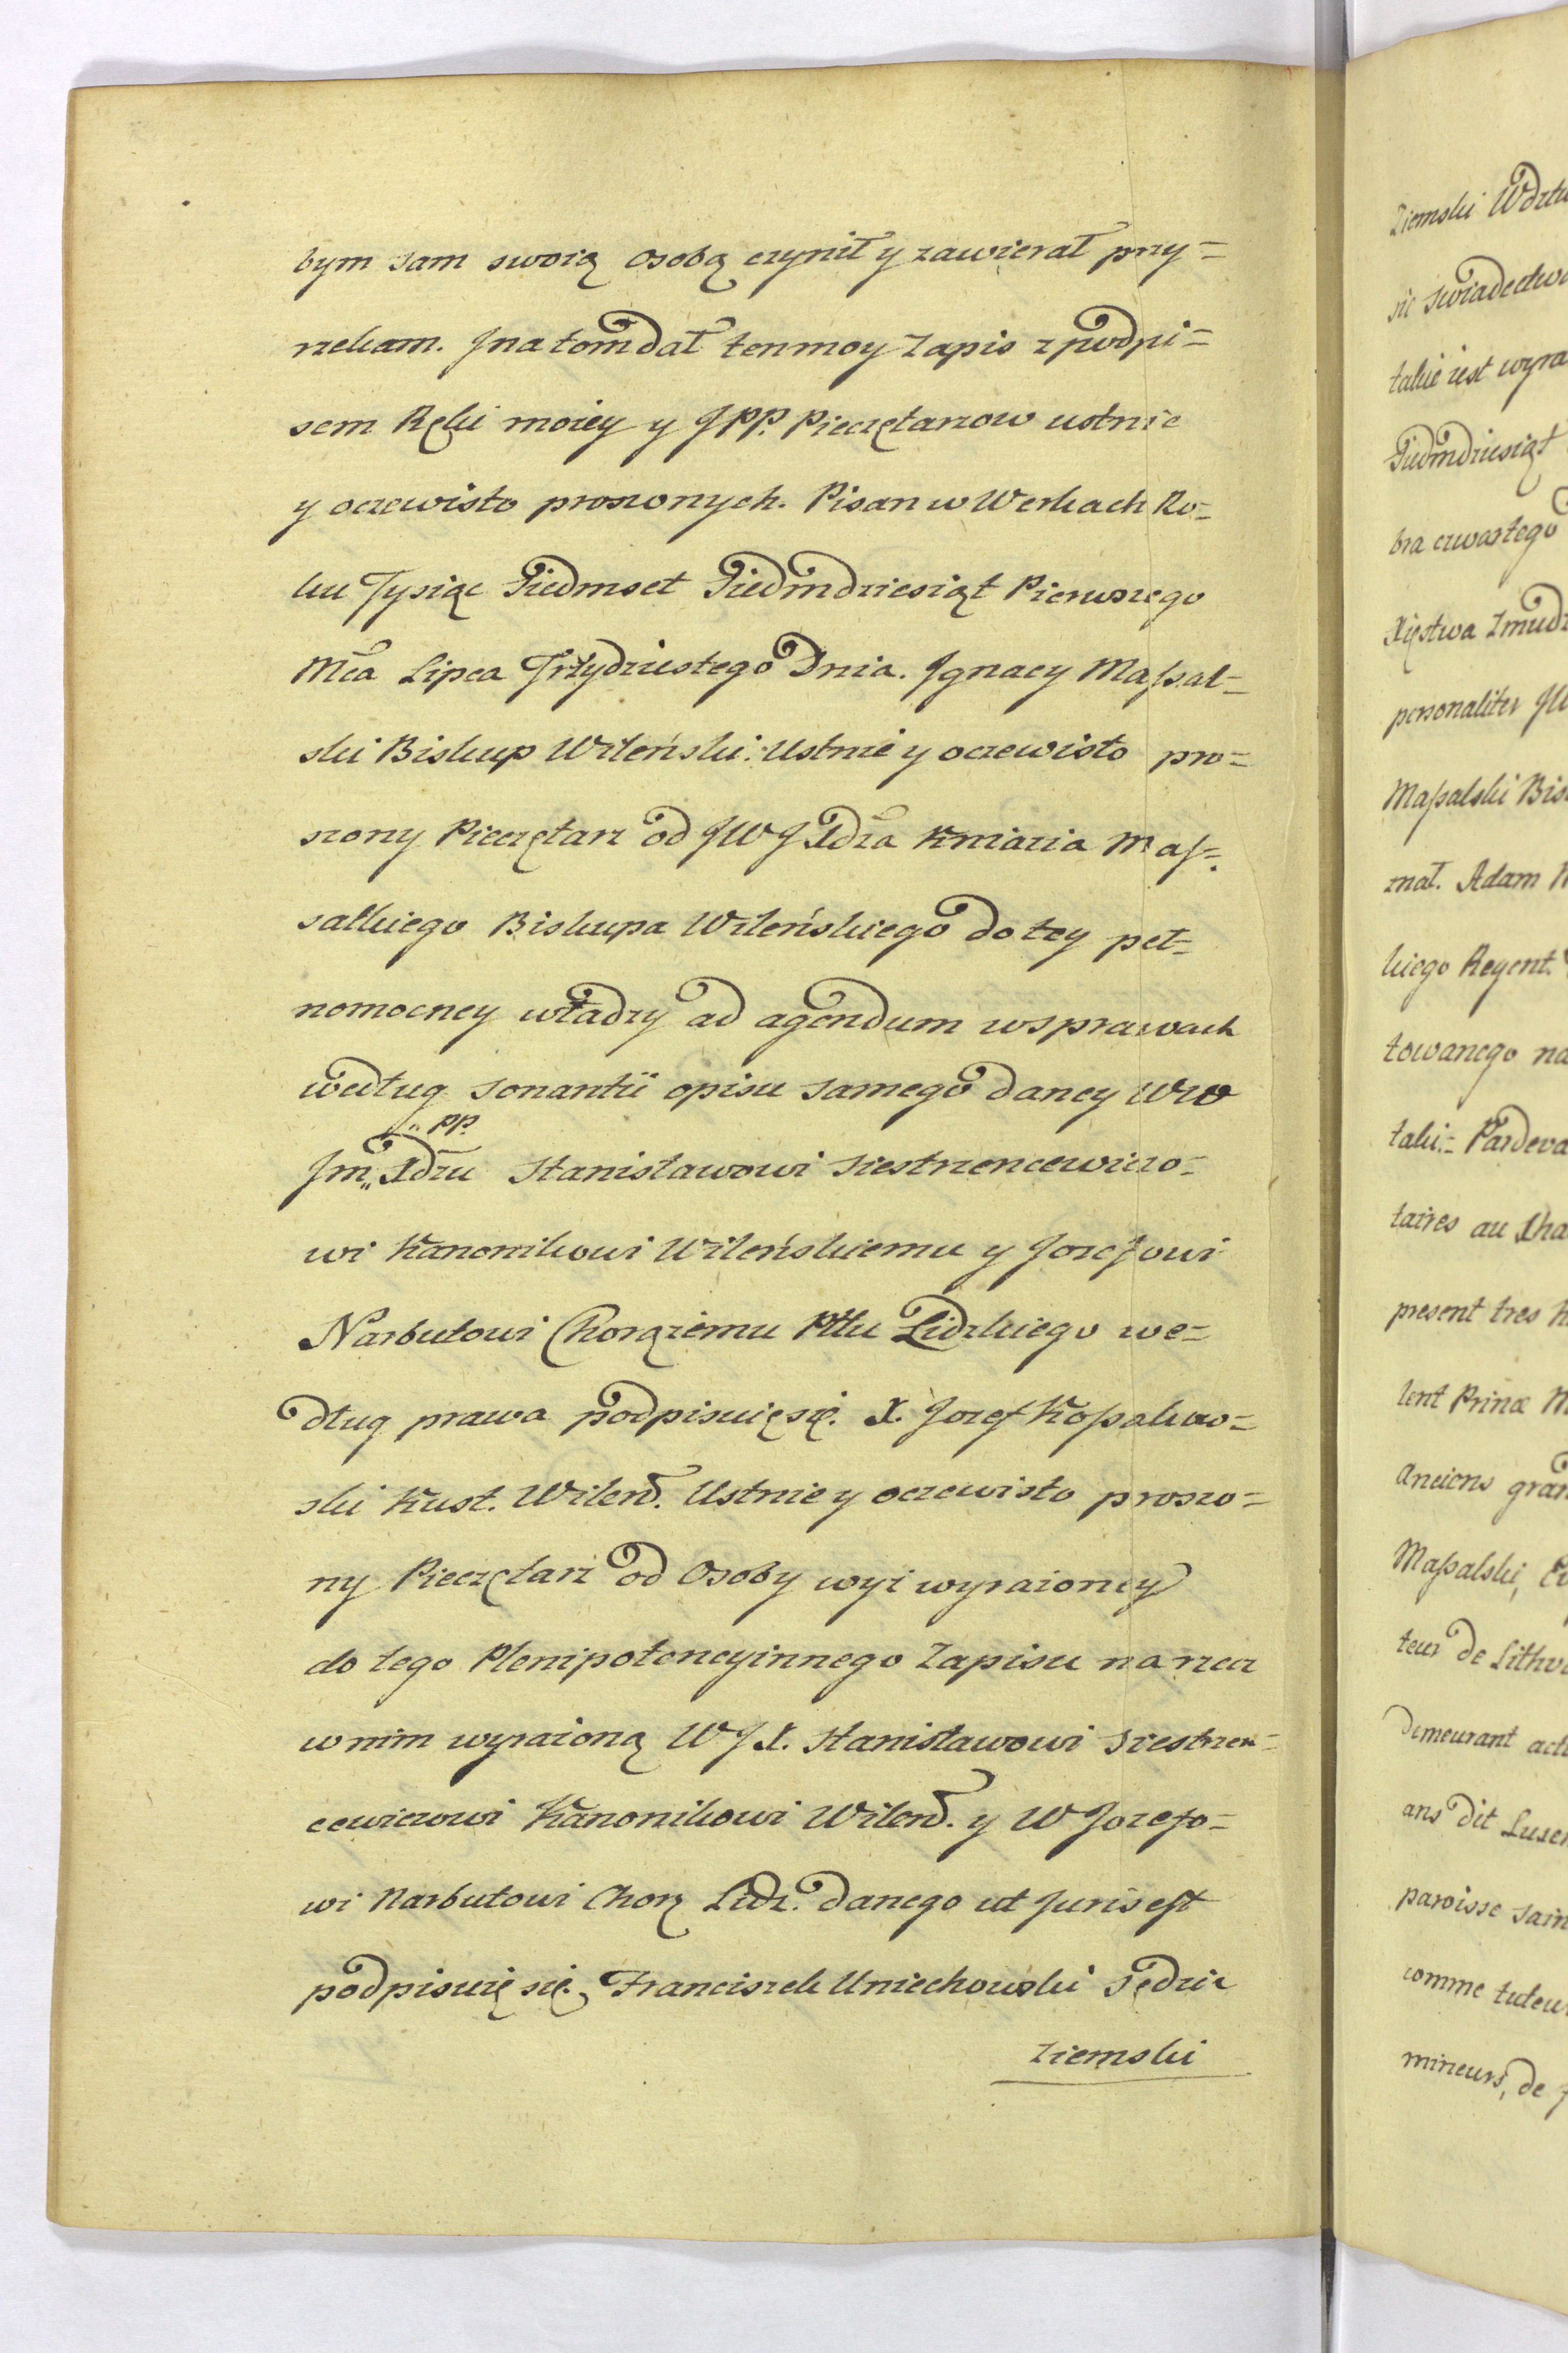 bym sam swoią osobą czynił y zawierał przy=
rzekam. Jna tom dał ten moy Zapis z podpi=
sem Ręki moiey y JPP. Pieczętarzow ustnie
y oczewisto proszonych. Pisan w Werkach Ro=
ku Tysiąc Siedmset Siedmdziesiąt Pierwszego
Mca Lipca Trzydziestego Dnia. Jgnacy Massal=
ski Biskup Wileński. Ustnie y oczewisto pro=
szony Pieczętarz od JWJXdza Kniazia Mas=
salkiego Biskupa Wileńskiego do tey peł=
nomocney władzy ad agendum wsprawach
według sonantii opisu samego daney Wo
PP.
Jm Xdzu Stanisławowi Siestrzencewiczo=
wi Kanonikowi Wileńskiemu y Jozefowi
Narbutowi Chorążemu Pttu Lidzkiego we=
dług prawa podpisuię się. X. Jozef Kossakow=
ski Kust. Wilen. Ustnie y oczewisto proszo=
ny Pieczętarz od Osoby wyż wyrażoney
do tego Plenipotencyinnego Zapisu na rzecz
w nim wyrażoną WJX. Stanisławowi Siestrzen=
cewiczowi Kanonikowi Wilen. y W Jozefo=
wi Narbutowi Chorą Lidz. danego ut Juris est
podpisuię się. Franciszek Uniechowski Sędzia
Ziemski
Ziemski
takie iest
Siedmdziesiąt
czwartego
Xięstwa
personaliter
Massalski
znał. Adam
kiego Regent.
towanego
taires au
present tres
lent Prince
Anciens
Massalski,
teur de
demeurant
ans dit
paroisse
comme
mineurs, de